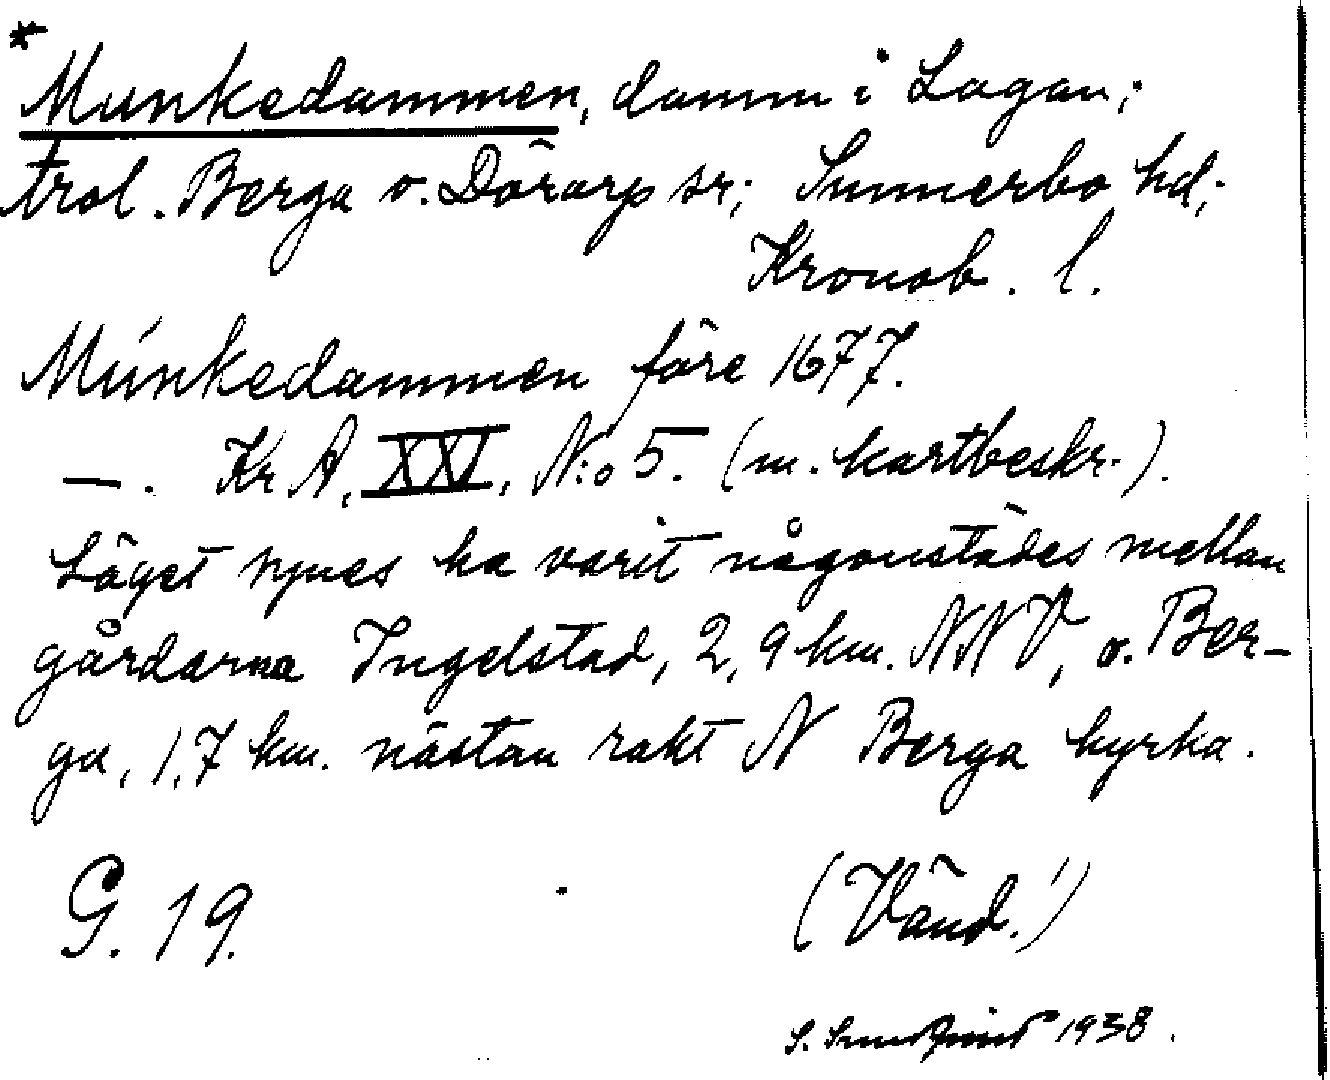 *
Munkedammen, damm i Lagan;
trol. Berga o. Dörarp sr; Sunnerbo hd;
Kronob. l.
Munkedammen före 1677.
—. Kr A, XXI, N:o 5. (m. kartbeskr.).
Läget synes ha varit någonstädes mellan
gårdarna Ingelstad, 2,9 km. NNV, o. Ber-
ga, 1,7 km. nästan rakt N Berga kyrka.
G. 19.
(Vänd!)
S. 1938.